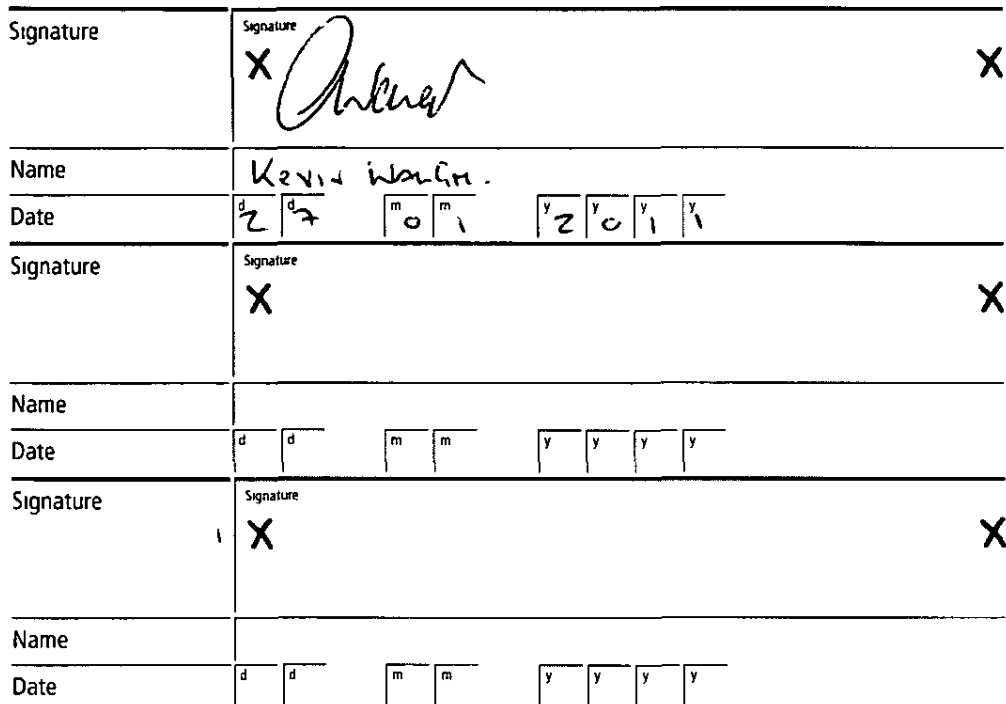 Signature
Signature
X X
Name Kevin
Date d 2 d 7 m 0 m 1 y 2 y 0 y 1 y 1
Signature
Signature
X X
Name
Date d d m m y y y y
Signature
Signature
X X
Name
Date d d m m y y y y